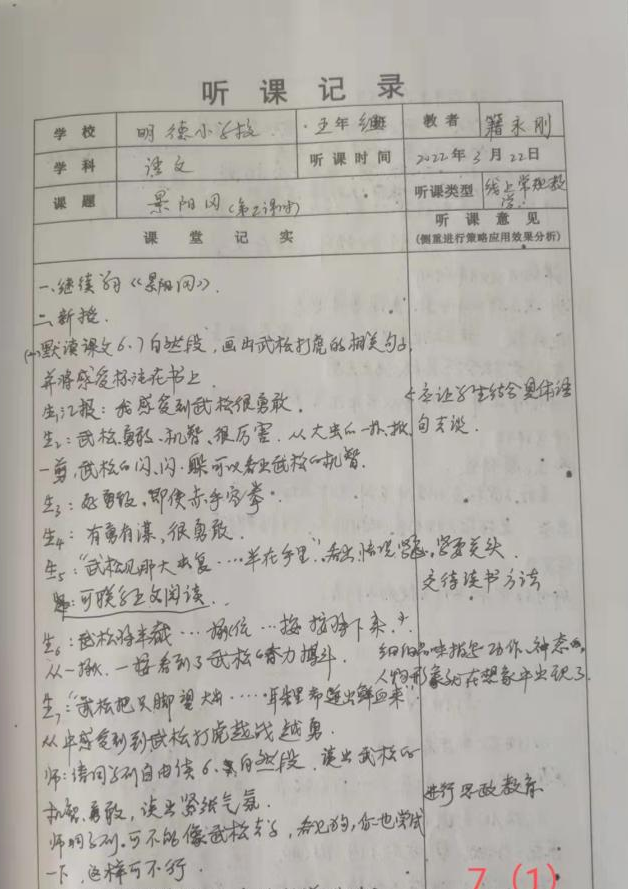 听课记录
学校 明德小学校 五年级 教者 籍永刚
学科 语文 听课时间 2022年3月22日
课题 景阳冈(第二课时) 听课类型 线上常规教学
课堂记实 听课意见
(侧重进行策略应用效果分析)
一、继续学习《景阳冈》.
二、新授.
(一)默读课文6、7自然段,画出武松打虎的相关句子,
并将感受标注在书上.
生1汇报:我感受到武松很勇敢.
应让学生结合具体语
生2:武松勇敢、机智、很厉害.从大虫的一扑、一掀、
句去谈.
一剪,武松的闪、闪、躲可以看出武松的机智.
生3:勇敢,即使赤手空拳.
生4:有勇有谋,很勇敢.
生5:“武松见那大虫复……半在手里”,看出
可联系上文阅读.
交待读书方法
生6:武松将半截…揪住…按按将下来.
从一揪、一按看到了武松奋力搏斗.
动作、神态
人物形象就在想象中出现了.
生7:“武松把只脚望大虫……耳朵里都迸出鲜血来”
从中感受到武松打虎越战越勇.
师:请同学们自由读6、自然段,读出武松的
机智、勇敢,读出紧张气氛.
进行思政教育
师:同学们,可不能像武松去了,你也尝试
一下,这样可不行.
7(1)